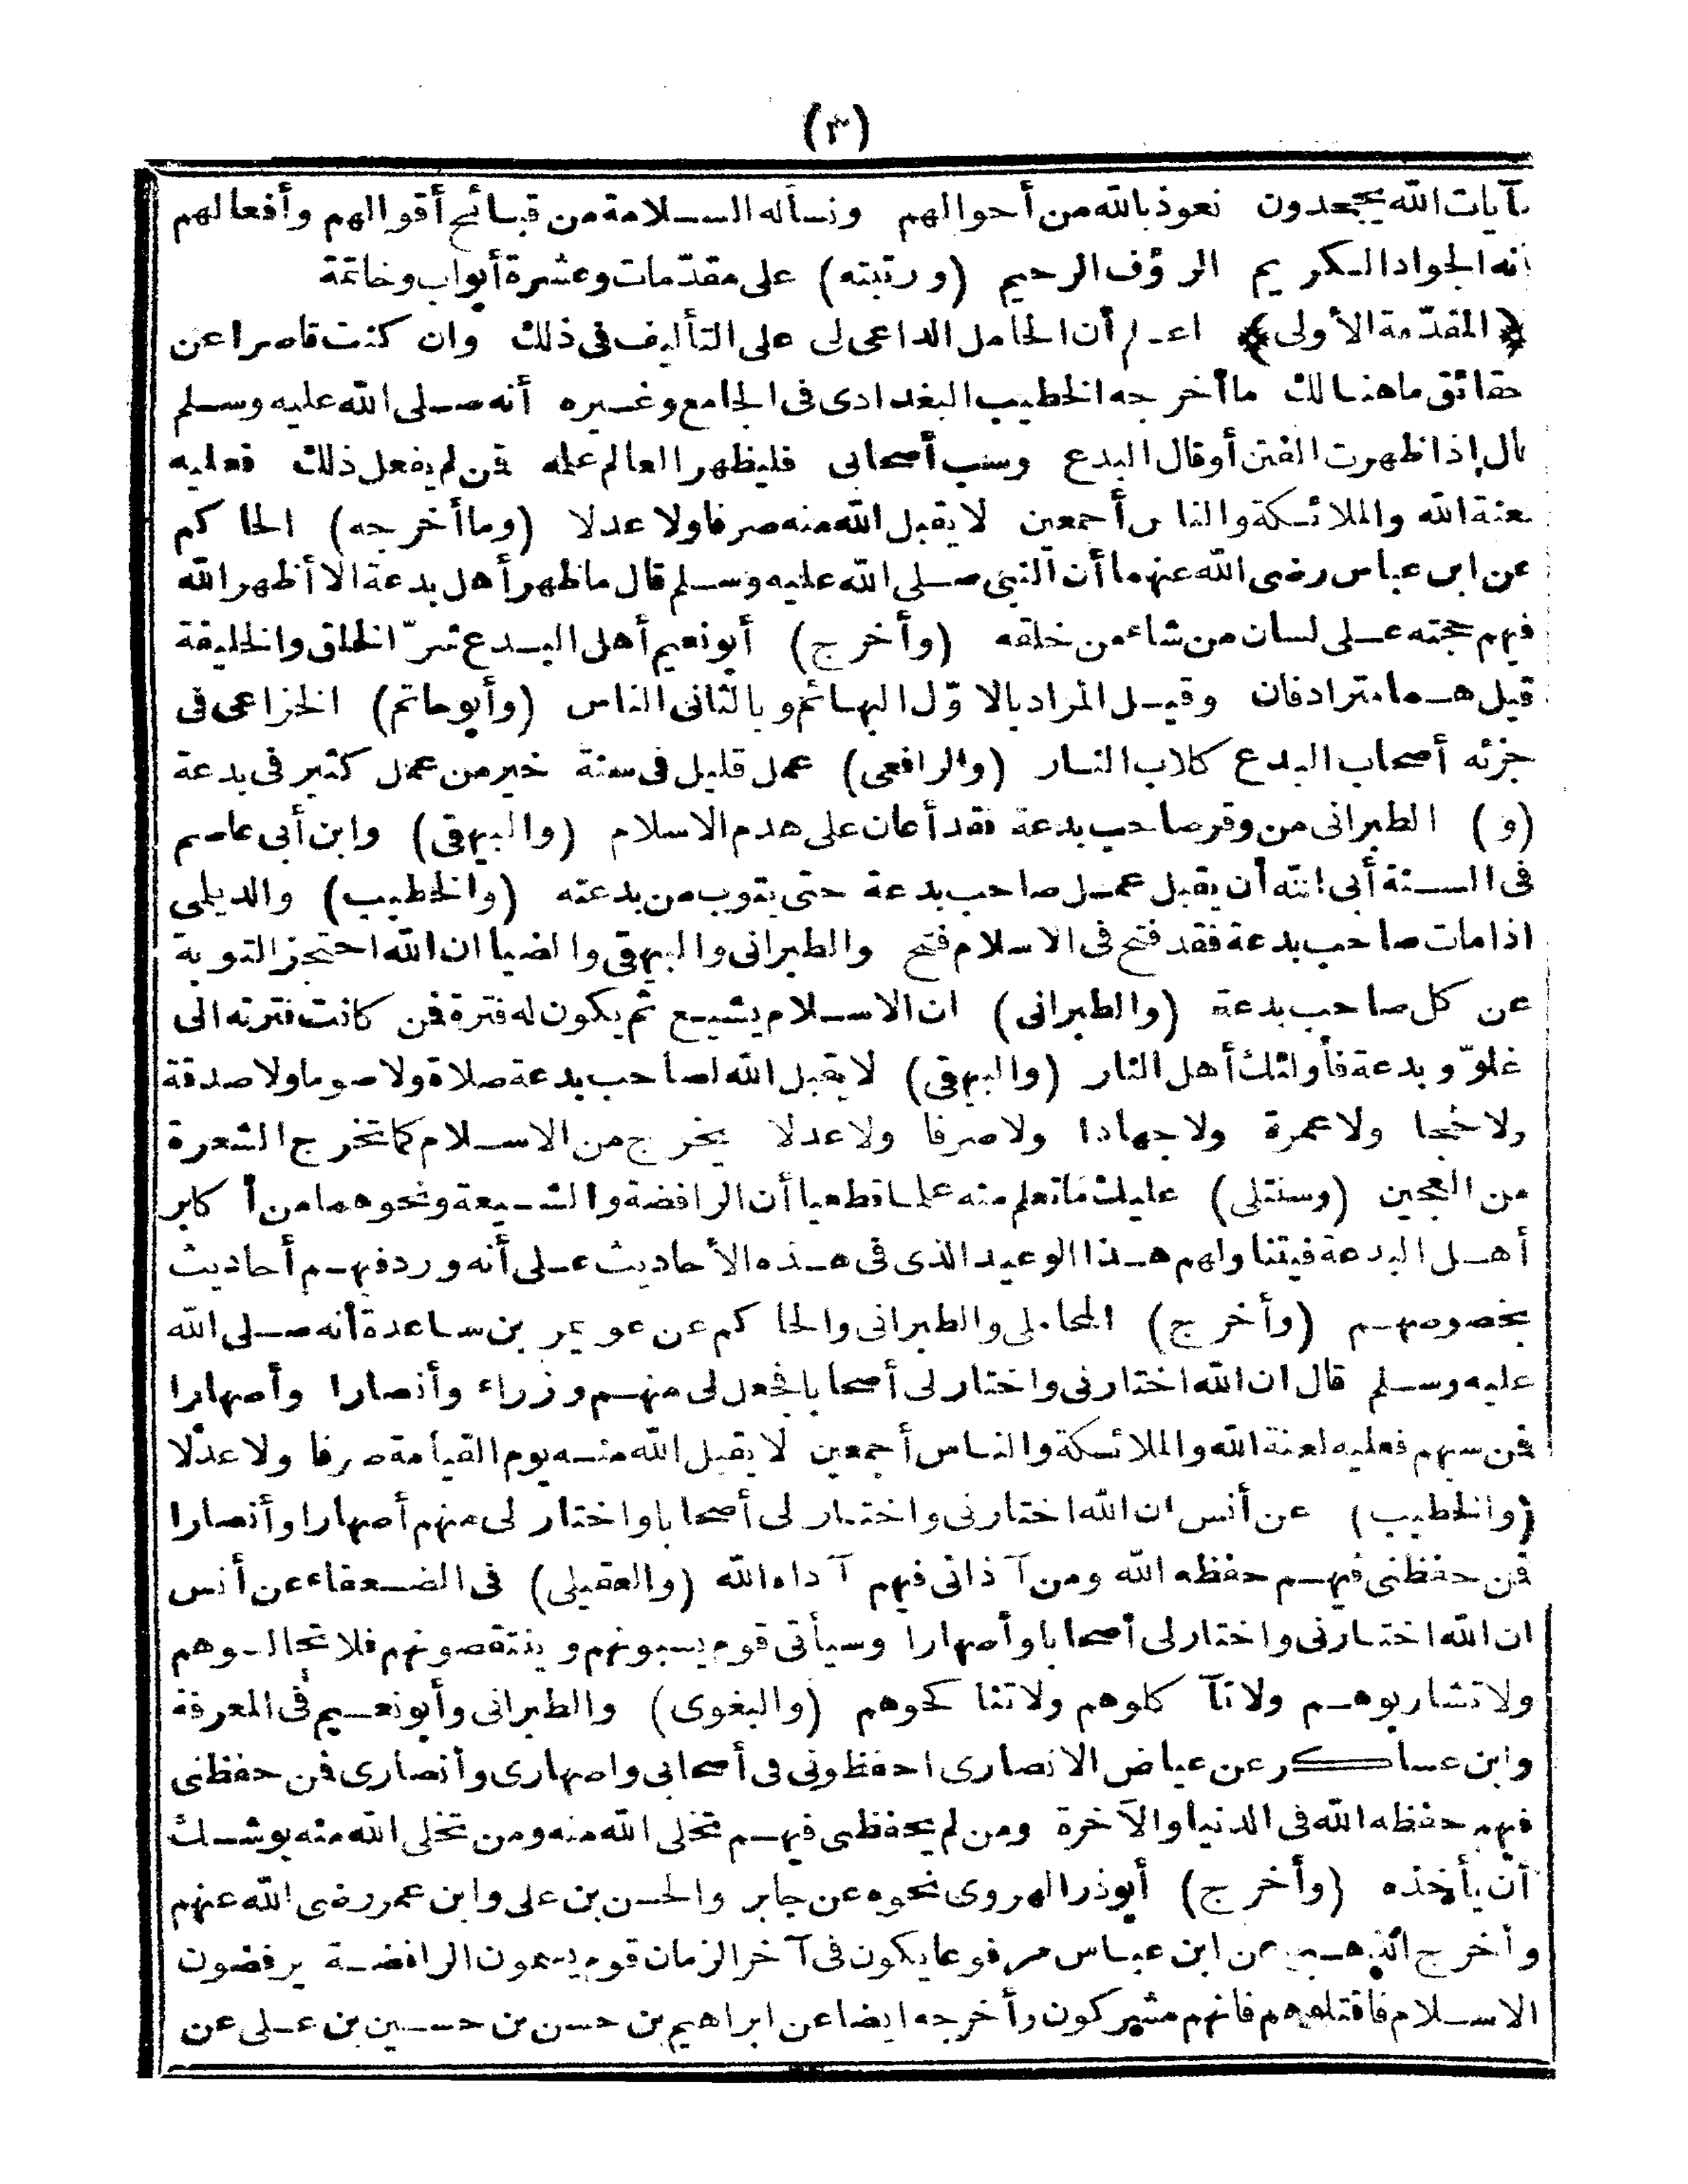 (٣)
بآيات الله يجحدون نعوذ بالله من أحوالهم ونسأله السلامة من قبائح أقوالهم وأفعالهم
انه الجواد الكريم الرؤف الرحيم (ورتبته) على مقدّمات وعشرة أبواب وخاتمة
﴿المقدّمة الأولى﴾ اعلم أن الحامل الداعى لى على التأليف فى ذلك وان كنت قاصرا عن
حقائق ما هنالك ما أخرجه الخطيب البغدادى فى الجامع وغيره أنه صلى الله عليه وسلم
قال إذا ظهرت الفتن أو قال البدع وسب أصحابى فليظهر العالم علمه فمن لم يفعل ذلك فعليه
لعنة الله والملائكة والناس أجمعين لا يقبل الله منه صرفا ولا عدلا (وما أخرجه) الحاكم
عن ابن عباس رضى الله عنهما أن النبى صلى الله عليه وسلم قال ما ظهر أهل بدعة الا أظهر الله
فيهم حجته على لسان من شاء من خلقه (وأخرج) أبو نعيم أهل البدع شرّ الخلق والخليقة
قيل هما مترادفان وقيل المراد بالاوّل البهائم وبالثانى الناس (وأبو حاتم) الخزاعى فى
جزئه أصحاب البدع كلاب النار (والرافعى) عمل قليل فى سنة خير من عمل كثير فى بدعة
(و) الطبرانى من وقر صاحب بدعة فقد أعان على هدم الاسلام (والبيهقى) وابن أبى عاصم
فى السنة أبى الله أن يقبل عمل صاحب بدعة حتى يتوب من بدعته (والخطيب) والديلمى
اذا مات صاحب بدعة فقد فتح فى الاسلام فتح والطبرانى والبيهقى والضيا ان الله احتجز التوبة
عن كل صاحب بدعة (والطبرانى) ان الاسلام يشيع ثم يكون له فترة فمن كانت فترته الى
غلوّ وبدعة فأولئك أهل النار (والبيهقى) لا يقبل الله لصاحب بدعة صلاة ولا صوما ولا صدقة
ولا حجا ولا عمرة ولا جهادا ولا صرفا ولا عدلا يخرج من الاسلام كما تخرج الشعرة
من العجين (وسنتلى) عليك ما تعلم منه علما قطعيا أن الرافضة والشيعة ونحوهما من أكابر
أهل البدعة فيتناولهم هذا الوعيد الذى فى هذه الأحاديث على أنه ورد فيهم أحاديث
بخصوصهم (وأخرج) المحاملى والطبرانى والحاكم عن عويمر بن ساعدة أنه صلى الله
عليه وسلم قال ان الله اختارنى واختار لى أصحابا فجعل لى منهم وزراء وأنصارا وأصهارا
فمن سبهم فعليه لعنة الله والملائكة والناس أجمعين لا يقبل الله منه يوم القيامة صرفا ولا عدلا
(والخطيب) عن أنس ان الله اختارنى واختار لى أصحابا واختار لى منهم أصهارا وأنصارا
فمن حفظنى فيهم حفظه الله ومن آذانى فيهم آذاه الله (والعقيلى) فى الضعفاء عن أنس
ان الله اختارنى واختار لى أصحابا وأصهارا وسيأتى قوم يسبونهم وينتقصونهم فلا تجالسوهم
ولا تشاربوهم ولا تآكلوهم ولا تناكحوهم (والبغوى) والطبرانى وأبو نعيم فى المعرفة
وابن عساكر عن عياض الانصارى احفظونى فى أصحابى واصهارى وأنصارى فمن حفظنى
فيهم حفظه الله فى الدنيا والآخرة ومن لم يحفظنى فيهم تخلى الله منه ومن تخلى الله منه يوشك
أن يأخذه (وأخرج) أبو ذر الهروى نحوه عن جابر والحسن بن على وابن عمر رضى الله عنهم
وأخرج الذهبى عن ابن عباس مرفوعا يكون فى آخر الزمان قوم يسمون الرافضة يرفضون
الاسلام فاقتلوهم فانهم مشركون وأخرجه ايضا عن ابراهيم بن حسن بن حسين بن على عن